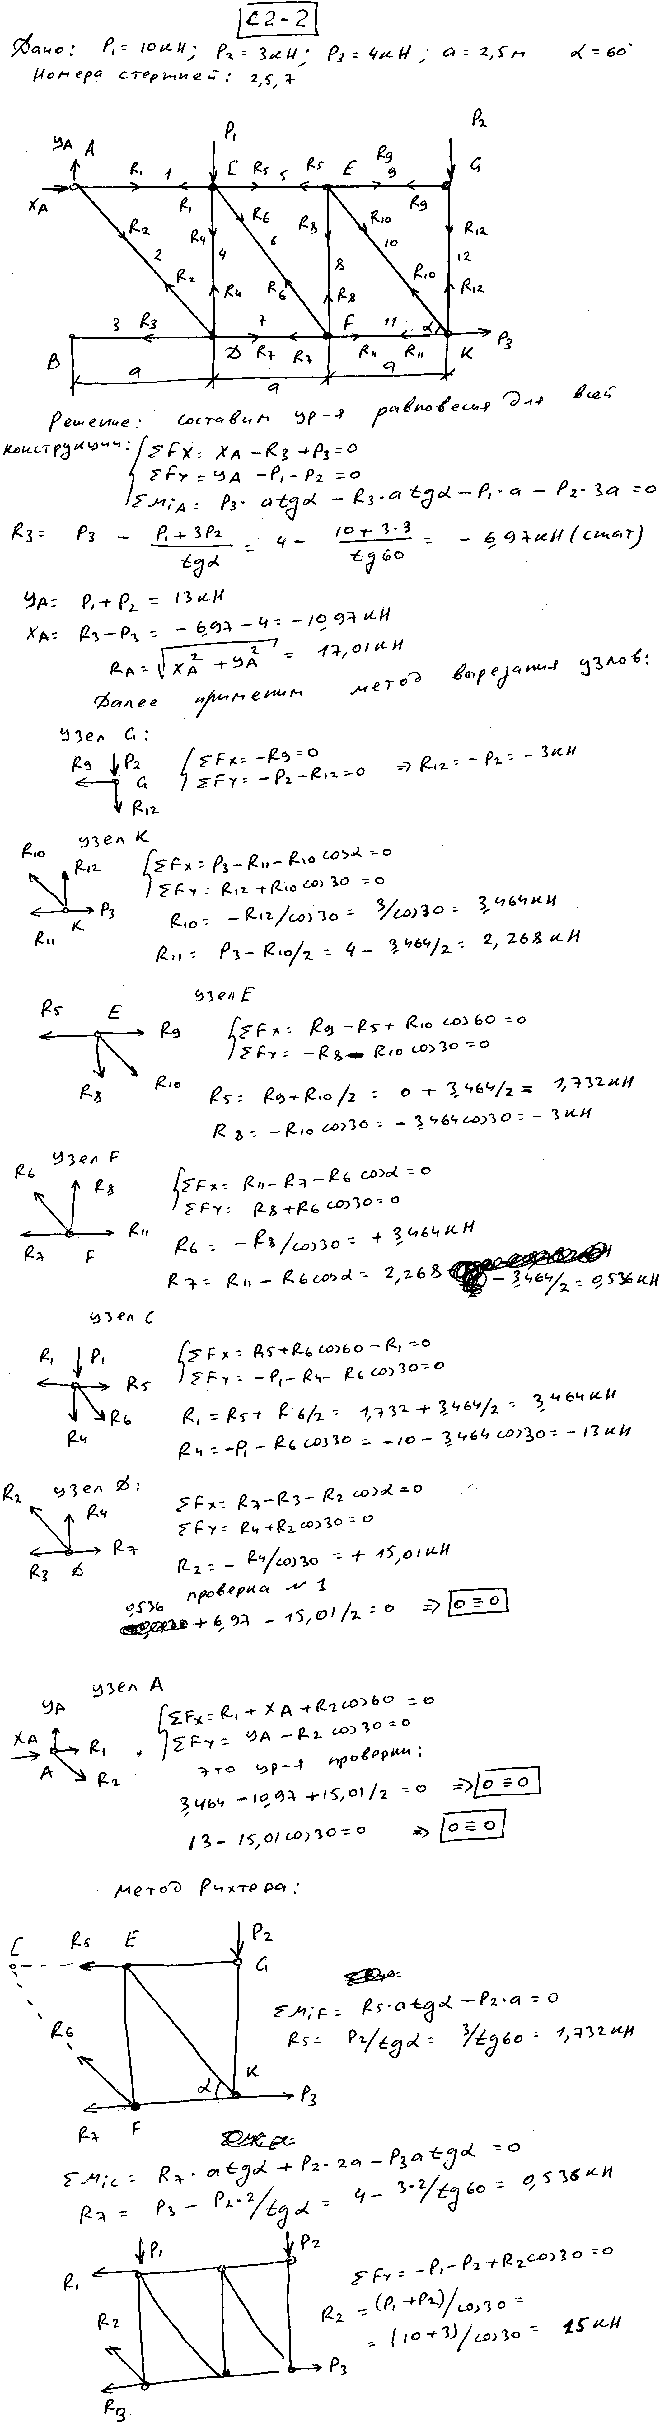 С2-2
Дано: P₁ = 10кН; P₂ = 3кН; P₃ = 4кН; a = 2,5м α = 60°
Номера стержней: 2,5,7
P₁ P₂
YA A R₁ 1 C R₅ 5 R₅ E R₉ 9 G
XA R₁ R₉
R₂ R₄ R₆ R₈ R₁₀ R₁₂
2 4 6 8 10 12
R₂ R₄ R₆ R₈ R₁₀ R₁₂
3 R₃ 7 F 11 α P₃
B D R₇ R₇ R₁₁ R₁₁ K
a a a
Решение: составим ур-я равновесия для всей
конструкции: ΣFx = XA - R₃ + P₃ = 0
ΣFy = YA - P₁ - P₂ = 0
ΣMiA = P₃·atgα - R₃·atgα - P₁·a - P₂·3a = 0
R₃ = P₃ - (P₁ + 3P₂)/tgα = 4 - (10 + 3·3)/tg60 = -6,97кН (сжат)
YA = P₁ + P₂ = 13кН
XA = R₃ - P₃ = -6,97 - 4 = -10,97кН
RA = √(XA² + YA²) = 17,01кН
Далее применим метод вырезания узлов:
узел G:
R₉ P₂ G R₁₂
ΣFx = -R₉ = 0
ΣFy = -P₂ - R₁₂ = 0 ⇒ R₁₂ = -P₂ = -3кН
узел K
R₁₀ R₁₂ P₃ K R₁₁
ΣFx = P₃ - R₁₁ - R₁₀ cosα = 0
ΣFy = R₁₂ + R₁₀ cos30 = 0
R₁₀ = -R₁₂/cos30 = 3/cos30 = 3,464кН
R₁₁ = P₃ - R₁₀/2 = 4 - 3,464/2 = 2,268кН
узел E
R₅ E R₉ R₈ R₁₀
ΣFx = R₉ - R₅ + R₁₀ cos60 = 0
ΣFy = -R₈ - R₁₀ cos30 = 0
R₅ = R₉ + R₁₀/2 = 0 + 3,464/2 = 1,732кН
R₈ = -R₁₀ cos30 = -3,464cos30 = -3кН
узел F
R₆ R₈ R₁₁ R₇ F
ΣFx = R₁₁ - R₇ - R₆ cosα = 0
ΣFy = R₈ + R₆ cos30 = 0
R₆ = -R₈/cos30 = +3,464кН
R₇ = R₁₁ - R₆cosα = 2,268 - 3,464/2 = 0,536кН
узел C
R₁ P₁ R₅ R₆ R₄
ΣFx = R₅ + R₆cos60 - R₁ = 0
ΣFy = -P₁ - R₄ - R₆cos30 = 0
R₁ = R₅ + R₆/2 = 1,732 + 3,464/2 = 3,464кН
R₄ = -P₁ - R₆cos30 = -10 - 3,464cos30 = -13кН
узел D:
R₂ R₄ R₇ R₃ D
ΣFx = R₇ - R₃ - R₂ cosα = 0
ΣFy = R₄ + R₂cos30 = 0
R₂ = -R₄/cos30 = +15,01кН
проверка N 1
0,536 + 6,97 - 15,01/2 = 0 ⇒ 0 ≡ 0
узел A
YA XA R₁ A R₂
ΣFx = R₁ + XA + R₂cos60 = 0
ΣFy = YA - R₂ cos30 = 0
это ур-я проверки:
3,464 - 10,97 + 15,01/2 = 0 ⇒ 0 ≡ 0
13 - 15,01cos30 = 0 ⇒ 0 ≡ 0
метод Риттера:
C R₅ E P₂ G
R₆ α K P₃
R₇ F
ΣMiF = R₅·atgα - P₂·a = 0
R₅ = P₂/tgα = 3/tg60 = 1,732кН
ΣMiC = R₇·atgα + P₂·2a - P₃atgα = 0
R₇ = P₃ - P₂·2/tgα = 4 - 3·2/tg60 = 0,536кН
P₁ P₂
R₁
R₂
R₃ P₃
ΣFy = -P₁ - P₂ + R₂cos30 = 0
R₂ = (P₁ + P₂)/cos30 =
= (10 + 3)/cos30 = 15кН